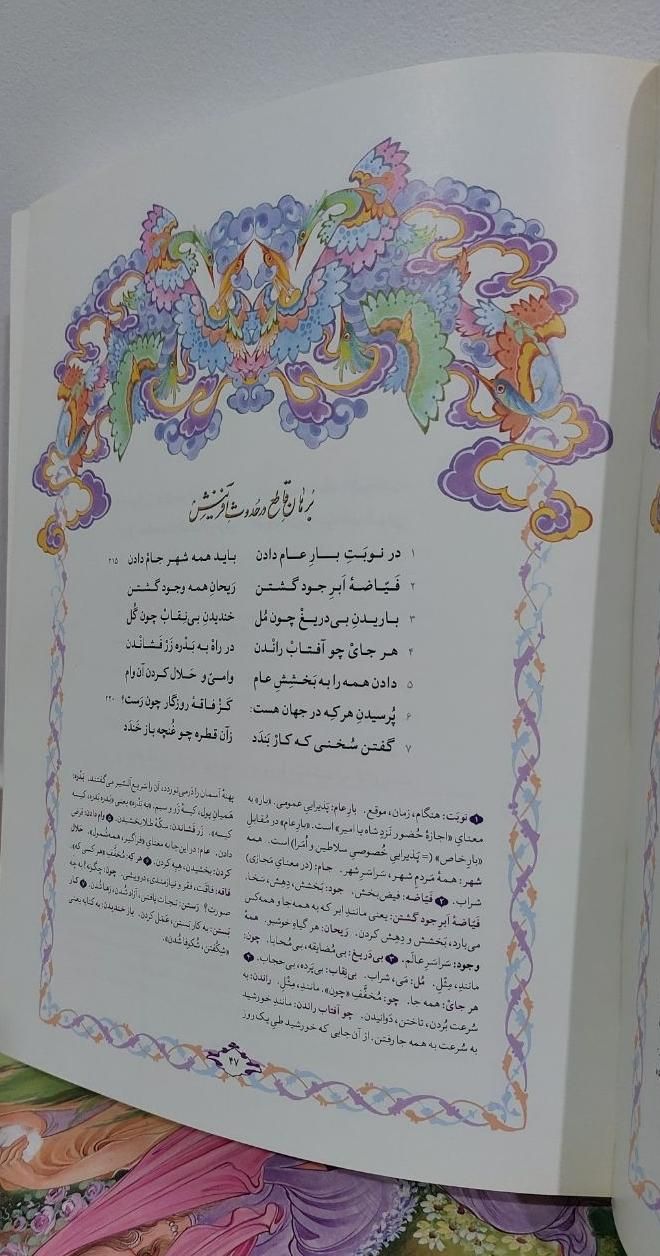 برهان قاطع در حدوث آفرینش
۱ در نوبَتِ بارِ عام دادن باید همه شهر جامْ دادن ۲۱۵
۲ فَیّاضهٔ اَبرِ جود گشتن رَیحانِ همه وجود گشتن
۳ باریدنِ بی‌دریغْ چون مُل خندیدنِ بی‌نِقابْ چون گُل
۴ هر جایْ چو آفتابْ رانْدن در راهْ به بَدْره زَرْ فَشانْدن
۵ دادن همه را به بَخشِشِ عام وامیّ و حَلال کردن آن وام
۶ پُرسیدنِ هر که در جهان هست: کَزْ فاقهٔ روزگار چون رَست؟ ۲۲۰
۷ گفتن سُخنی که کارْ بَندَد زآن قطره چو غُنچه باز خَندَد
۱ نوبَت: هنگام، زمان، موقع. بارِ عام: پَذیراییِ عمومی. «بار» به
معنایِ «اجازهٔ حُضور نَزدِ شاه یا امیر» است. «بارِ عام» در مُقابِلِ
«بارِ خاص» (= پَذیراییِ خُصوصیِ سَلاطین و اُمَرا) است. همه
شهر: همهٔ مَردمِ شهر، سَراسَرِ شهر. جام: (در معنایِ مَجازی)
شراب. ۲ فَیّاضه: فیض‌بخش. جود: بَخشش، دِهِش، سَخا.
فَیّاضهٔ اَبرِ جود گشتن: یعنی مانندِ ابر که به همه‌جا و همه‌کس
می‌بارد، بَخشش و دِهِش کردن. رَیحان: هر گیاهِ خوشبو. همهٔ
وجود: سَراسَرِ عالَم. ۳ بی‌دَریغ: بی‌مُضایقه، بی‌مُحابا. چون:
مانندِ، مِثْلِ. مُل: مَی، شَراب. بی‌نِقاب: بی‌پَرده، بی‌حجاب. ۴
هر جایْ: همه جا. چو: مُخَفَّفِ «چون»، مانندِ، مِثْلِ. راندن: به
سُرعت بُردن، تاختن، دَوانیدن. چو آفتاب راندن: مانندِ خورشید
به سُرعت به همه جا رفتن. از آن جایی که خورشید طیِ یک روز
پهنهٔ آسمان را دَرمی‌نوردد، آن را سَریع‌السَّیر می‌گفتند. بَدْره:
هَمیانِ پول، کیسهٔ زَر و سیم. «به بَدْره» یعنی «بَدره بَدره، کیسه
کیسه». زَر فَشاندن: سکّهٔ طلا بخشیدن. ۵ وام دادن: قرض
دادن. عام: در این‌جا به معنایِ «فَراگیر، همه‌شُمول». حَلال
کردن: بخشیدن، هِبه کردن. ۶ هر که: مُخَفَّفِ «هر کسی که».
فاقه: فاقَت، فَقر و نیازمندی، درویشی. چون: چگونه؟ به چه
صورت؟ رَستن: نجات یافتن، آزاد شُدن، رَها شُدن. ۷ کار
بَستن: به کار بَستن، عَمَل کردن. باز خَندیدن: به کنایه یعنی
«شِکُفتن، شکوفا شُدن».
۴۷